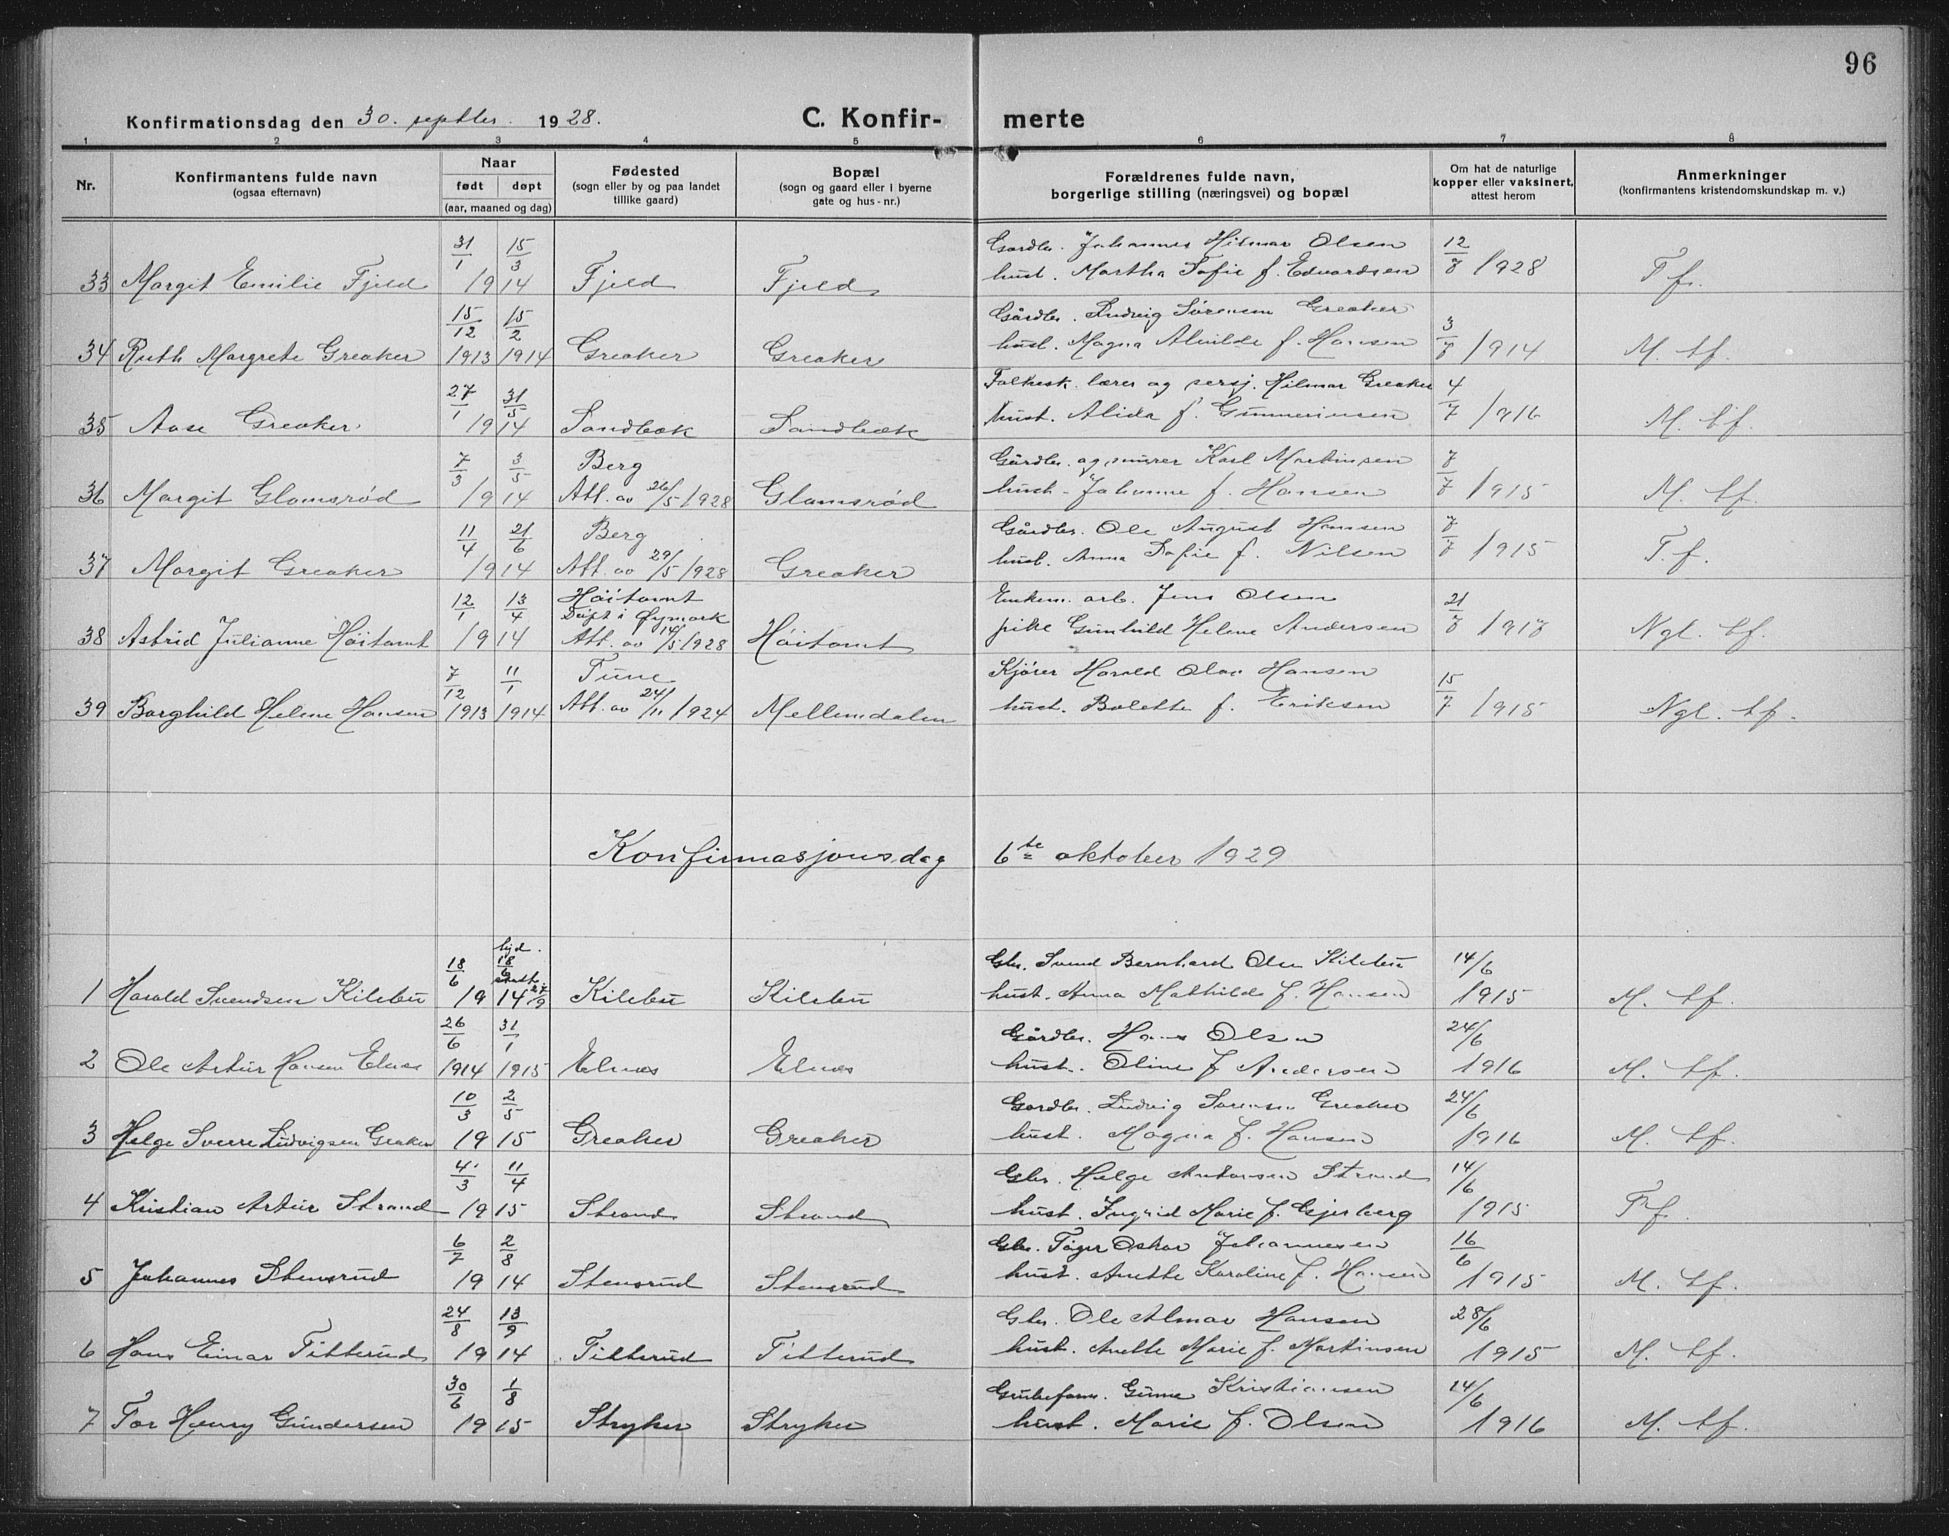 96
Konfirmationsdag den 30. septbr. 1928.
C. Konfir- merte
1 2 3 4 5 6 7 8
Nr.
Konfirmantens fulde navn
(ogsaa efternavn)
Naar
født døpt
(aar, maaned og dag)
Fødested
(sogn eller by og paa landet
tillike gaard)
Bopæl
(sogn og gaard eller i byerne
gate og hus-nr.)
Forældrenes fulde navn,
borgerlige stilling (næringsvei) og bopæl
Om hat de naturlige
kopper eller vaksinert,
attest herom
Anmerkninger
(konfirmantens kristendomskundskap m. v.)
31/1 15/3 Gardbr. Johannes Hilmar Olsen 12/8
33 Margit Emilie Fjeld 1914 Fjeld Fjeld hust. Martha Sofie f. Edvardsen 1928 T f.
15/12 15/2 Gårdbr. Ludvig Sørensen Greaker 3/8
34 Ruth Margrete Greaker 1913 1914 Greaker Greaker hust. Magna Alvilde f. Hansen 1914 M. tf.
27/1 31/5 Folkesk. lærer og sersj. Hilmar Greaker 4/7
35 Aase Greaker 1914 Sandbæk Sandbæk hust. Alida f. Gunneriusen 1916 M. tf.
7/3 3/5 Berg Gårdbr. og murer Karl Martinsen 7/7
36 Margit Glomsrød 1914 Att. av 26/5 1928 Glomsrød hust. Johanne f. Hansen 1915 M. tf.
11/4 21/6 Berg Gårdbr. Ole August Hansen 7/7
37 Margit Greaker 1914 Att. av 29/5 1928 Greaker hust. Anna Sofie f. Nilsen 1915 T. f.
12/1 13/4 Høitomt
Døpt i Øymark Enkem. arb. Jens Olsen 21/8
38 Astrid Julianne Høitomt 1914 Att. av 14/5 1928 Høitomt pike Gunhild Helene Andersen 1918 Ngl. tf.
7/12 11/1 Tune Kjører Harald Olav Hansen 15/7
39 Borghild Helene Hansen 1913 1914 Att. av 24/11 1924 Mellemdalen hust. Bolette f. Eriksen 1915 Ngl. tf.
Konfirmasjonsdag 6te oktober 1929
18/6 hjd. 18/6 Gbr. Svend Bernhard Olsen Kilebu 14/6
1 Harald Svendsen Kilebu 1914 27/9 Kilebu Kilebu hust. Anna Mathilde f. Hansen 1915 M. tf.
26/6 31/1 Gårdbr. Hans Olsen 24/6
2 Ole Artur Hansen Elnæs 1914 1915 Elnæs Elnæs hust. Oline f. Andersen 1916 M. tf.
10/3 2/5 Gardbr. Ludvig Sørensen Greaker 24/6
3 Helge Sverre Ludvigsen Greaker 1915 Greaker Greaker hust. Magna f. Hansen 1916 M. tf.
4/3 11/4 Gbr. Helge Antonsen Strand 14/6
4 Kristian Artur Strand 1915 Strand Strand hust. Ingrid Marie f. Gjerberg 1915 T f.
6/7 2/8 Gbr. Tøger Oskar Johannesen 16/6
5 Johannes Stensrud 1914 Stensrud Stensrud hust. Anette Karoline f. Hansen 1915 M. tf.
24/8 13/9 Gbr. Ole Almar Hansen 28/6
6 Hans Einar Titterud 1914 Titterud Titterud hust. Anette Marie f. Martinsen 1915 M. tf.
30/6 1/8 Grubeform. Gunne Kristiansen 24/6
7 Tor Henry Gundersen 1915 Stryker Stryker hust. Marie f. Olsen 1916 M. tf.